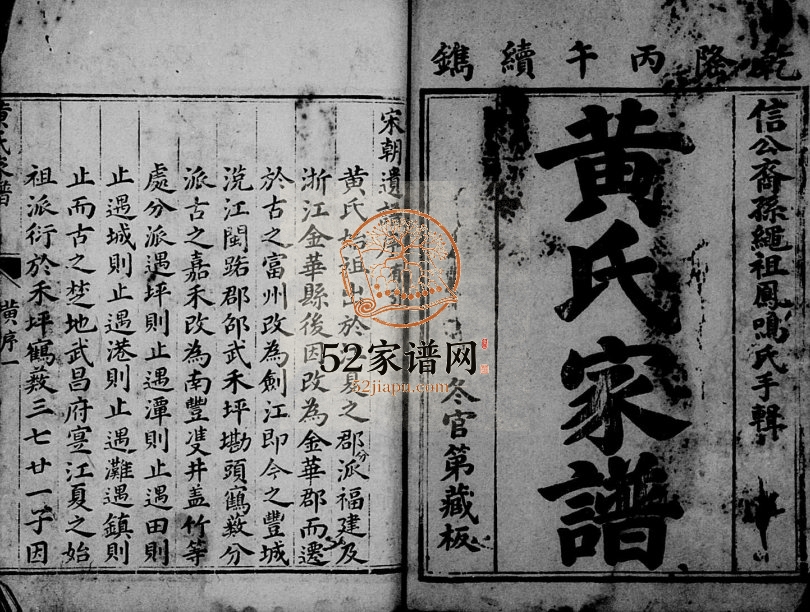 乾隆丙午續鐫
信公裔孫繩祖鳳鳴氏手輯
黄氏家譜
冬官第藏板
宋朝遺
黄氏始祖出於 夏之郡分派福建及
浙江金華縣後因改為金華郡而遷
於古之富州改為劍江即今之豐城
沇江閩路郡邵武禾坪墈頭鶴薮分
派古之嘉禾改為南豐雙井盖竹等
處分派遇坪則止遇潭則止遇田則
止遇城則止遇港則止遇灘遇鎮則
止而古之楚地武昌府寔江夏之始
祖派衍於禾坪鶴薮三七廿一子因
黄氏家譜
黄序一
52家谱网
52jiapu.com